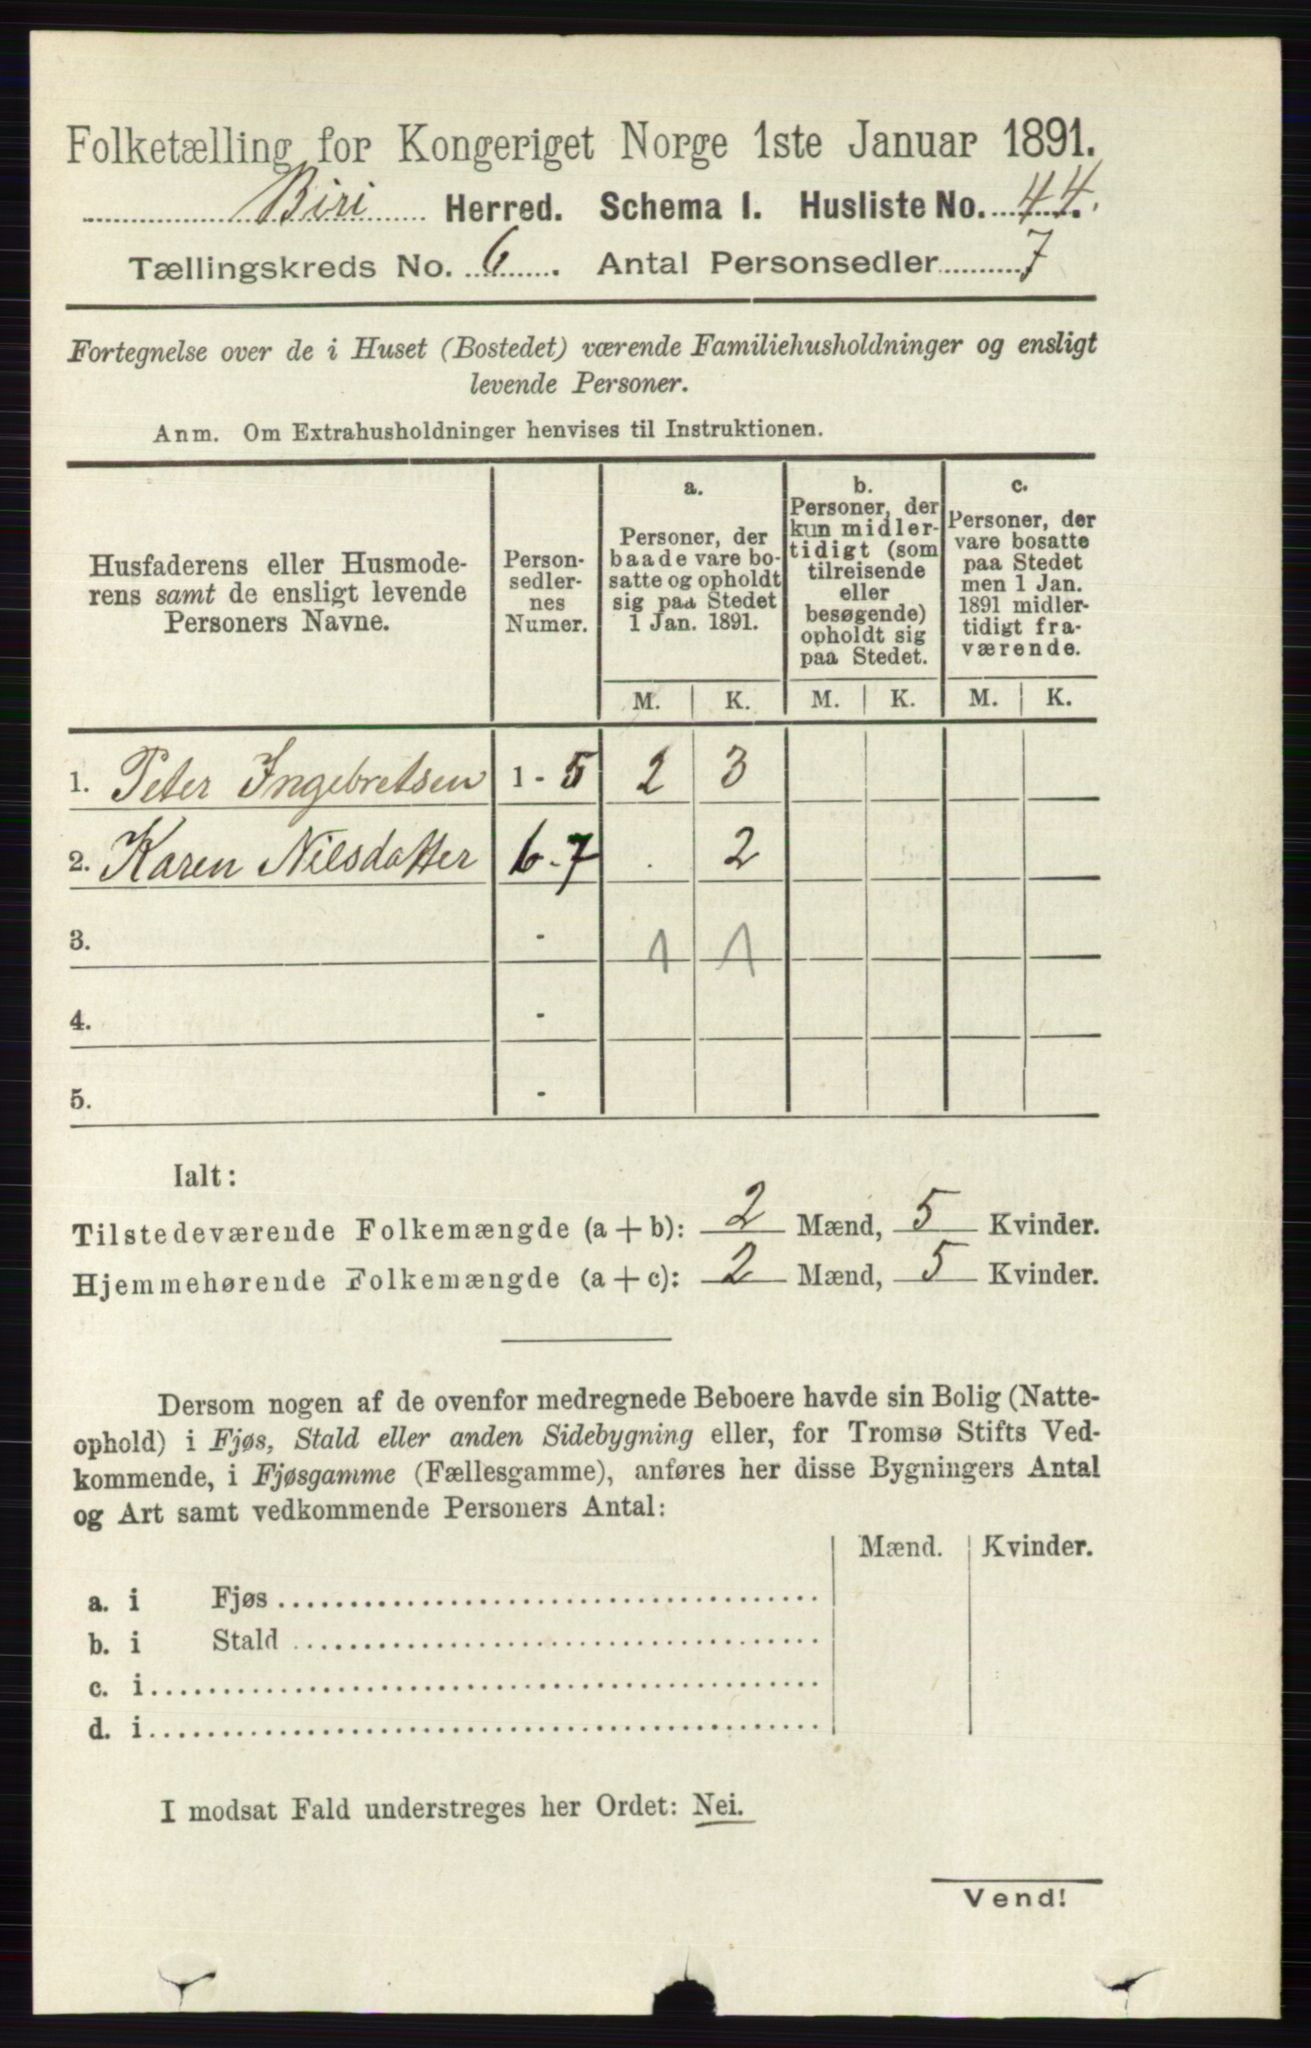 Folketælling for Kongeriget Norge 1ste Januar 1891.
Biri Herred. Schema I. Husliste No. 44.
Tællingskreds No. 6. Antal Personsedler 7
Fortegnelse over de i Huset (Bostedet) værende Familiehusholdninger og ensligt
levende Personer.
Anm. Om Extrahusholdninger henvises til Instruktionen.
Husfaderens eller Husmode-
rens samt de ensligt levende
Personers Navne.
Person-
sedler-
nes
Numer.
a.
Personer, der
baade vare bo-
satte og opholdt
sig paa Stedet
1 Jan. 1891.
b.
Personer, der
kun midler-
tidigt (som
tilreisende
eller
besøgende)
opholdt sig
paa Stedet.
c.
Personer, der
vare bosatte
paa Stedet
men 1 Jan.
1891 midler-
tidigt fra-
værende.
M. K. M. K. M. K.
1. Peter Ingebretsen 1 - 5 2 3
2. Karen Nilsdatter 6 - 7 . 2
3. -
4. -
5. -
Ialt:
Tilstedeværende Folkemængde (a + b): 2 Mænd, 5 Kvinder.
Hjemmehørende Folkemængde (a + c): 2 Mænd, 5 Kvinder.
Dersom nogen af de ovenfor medregnede Beboere havde sin Bolig (Natte-
ophold) i Fjøs, Stald eller anden Sidebygning eller, for Tromsø Stifts Ved-
kommende, i Fjøsgamme (Fællesgamme), anføres her disse Bygningers Antal
og Art samt vedkommende Personers Antal:
Mænd. Kvinder.
a. i Fjøs
b. i Stald
c. i
d. i
I modsat Fald understreges her Ordet: Nei.
Vend!